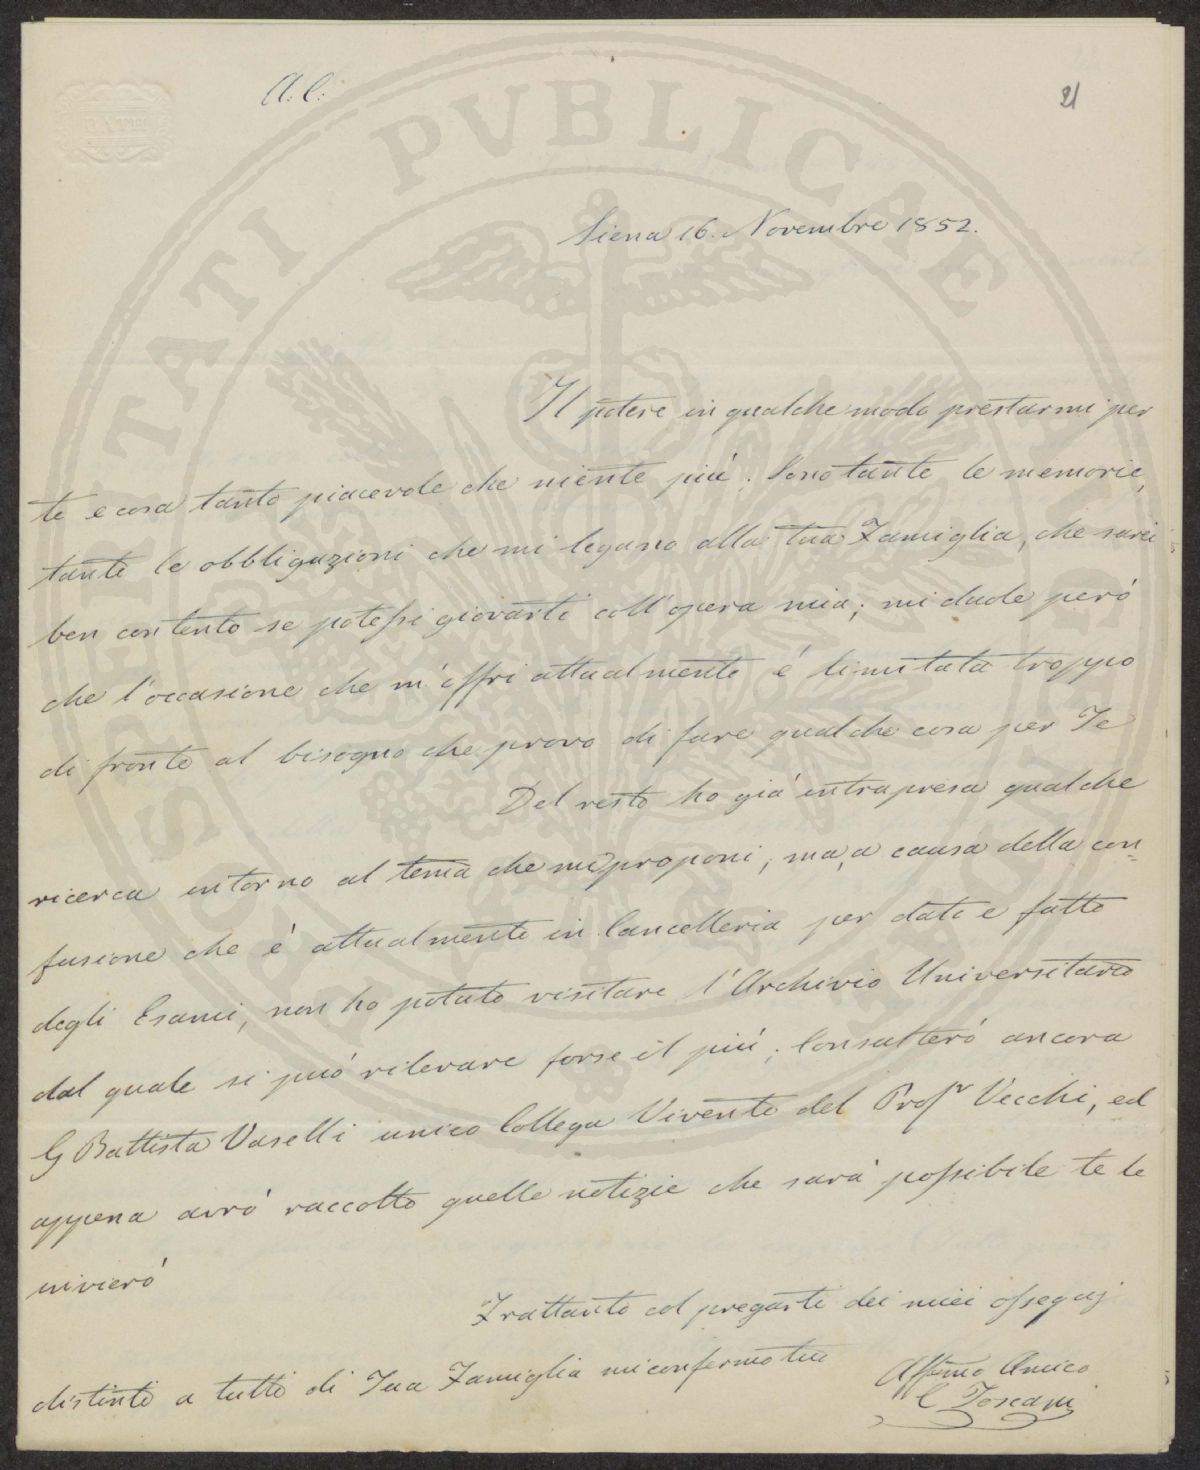 A. C.
21
Siena 16. Novembre 1852.
Il potere in qualche modo prestarmi per
te e cosa tanto piacevole che niente più. Sono tante le memorie,
tante le obbligazioni che mi legano alla tua Famiglia, che sarei
ben contento se potessi giovarti coll'opera mia; mi duole però
che l'occasione che m'offri attualmente é limitata troppo
di fronte al bisogno che provo di fare qualche cosa per Te
Del resto ho già intrapresa qualche
ricerca intorno al tema che mi proponi, ma, a causa della con=
fusione che é attualmente in Cancelleria per dato e fatto
degli Esami, non ho potuto visitare l'Archivio Universitario
dal quale si può rilevare forse il più; Consulterò ancora
G Battista Vaselli unico Collega Vivente del Profr Vecchi, ed
appena avrò raccolto quelle notizie che sarà possibile te le
invierò
Frattanto col pregarti dei miei ossequj
distinti a tutti di Tua Famiglia mi confermo tuo
Affmo Amico
C Toscani
PUBLICAE